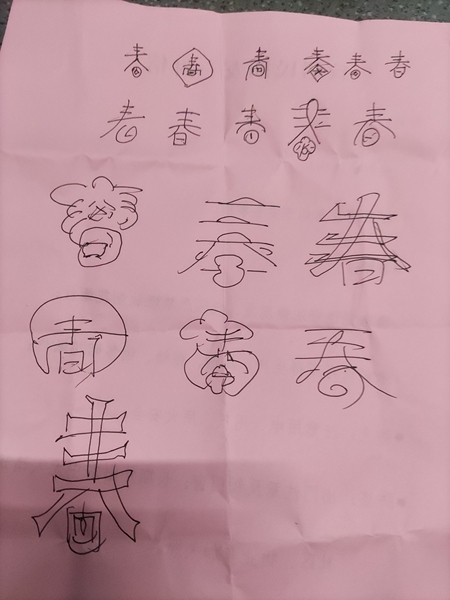 春 春 春 春 春 春
春 春 春 春 春
春 春
春 春 春
春